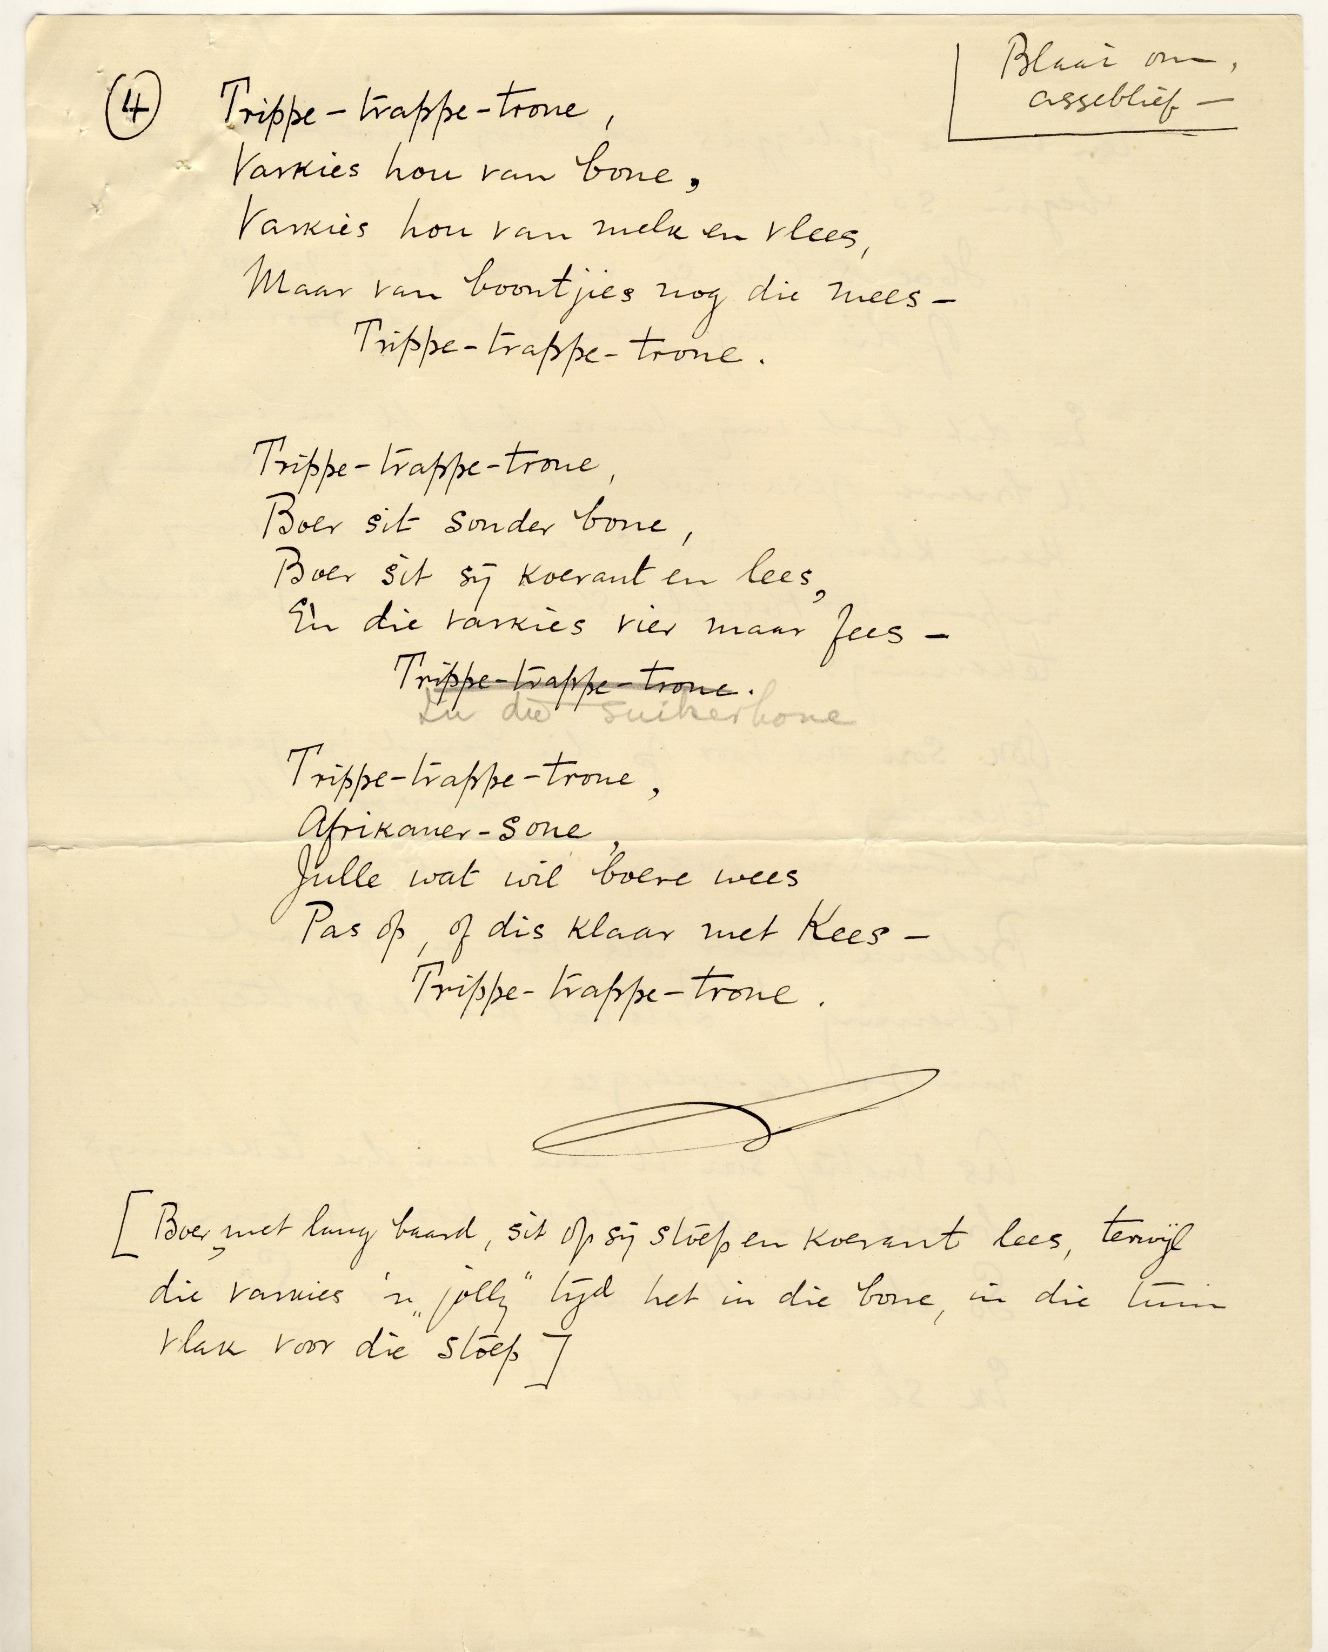 Blaai om,
asseblief —
④ Trippe-trappe-trone,
Varkies hou van bone,
Varkies hou van melk en vlees,
Maar van boontjies nog die mees —
Trippe-trappe-trone.
Trippe-trappe-trone,
Boer sit sonder bone,
Boer sit sy koerant en lees,
En die varkies vier maar fees —
Trippe-trappe-trone.
In die suikerbone
Trippe-trappe-trone,
Afrikaner-sone,
Julle wat wil boere wees
Pas op, of dis klaar met Kees —
Trippe-trappe-trone.
[Boer, met lang baard, sit op sy stoep en koerant lees, terwyl
die varkies 'n „jolly“ tyd het in die bone, in die tuin
vlak voor die stoep]